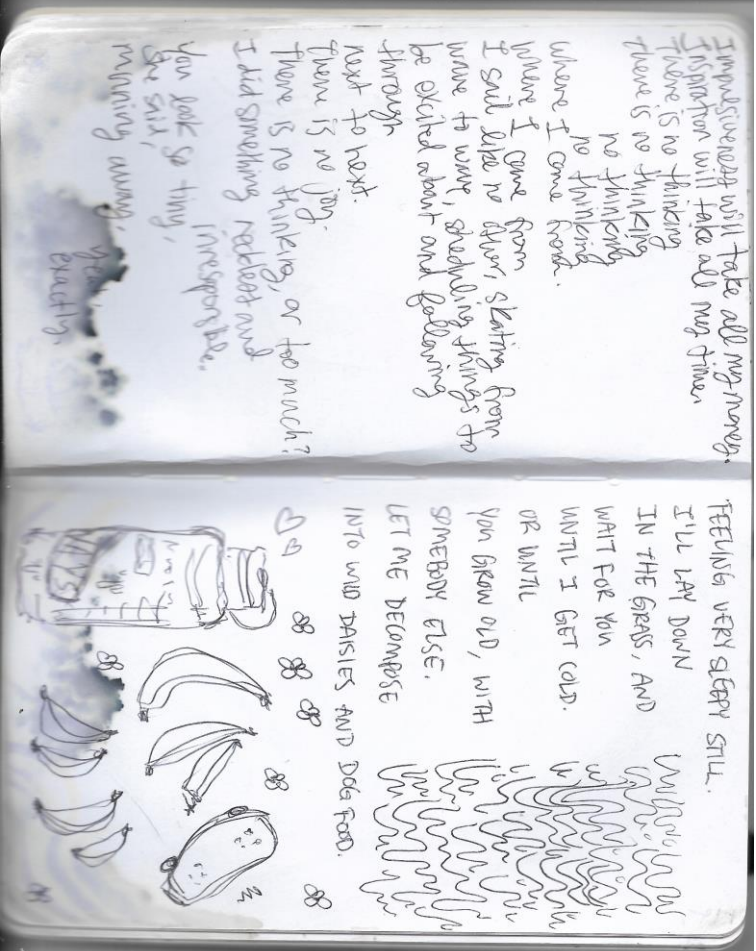 Impressiveness will take all my money.
Inspiration will take all my time.
There is no thinking
There is no thinking
no thinking
no thinking
where I come from.
Where I come from
I sail like no other, skating from
wave to wave, sheduling things to
be excited about and following
through
next to next.
There is no joy.
There is no thinking, or too much?
I did something reckless and
irresponsible.
You look so tiny,
she said,
running away.
yeah
exactly.
FEELING VERY SLEEPY STILL.
I'LL LAY DOWN
IN THE GRASS, AND
WAIT FOR YOU
UNTIL I GET COLD.
OR UNTIL
YOU GROW OLD, WITH
SOMEBODY ELSE.
LET ME DECOMPOSE
INTO WILD DAISIES AND DOG FOOD.